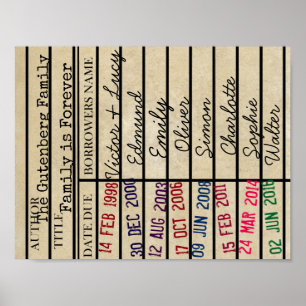 AUTHOR The Gutenberg Family
TITLE Family is Forever
DATE DUE BORROWERS NAME
14 FEB 1998 Victor + Lucy
30 DEC 2000 Edmund
12 AUG 2003 Emily
17 OCT 2006 Oliver
09 JUN 2008 Simon
15 FEB 2011 Charlotte
24 MAR 2014 Sophie
02 JUN 2016 Walter